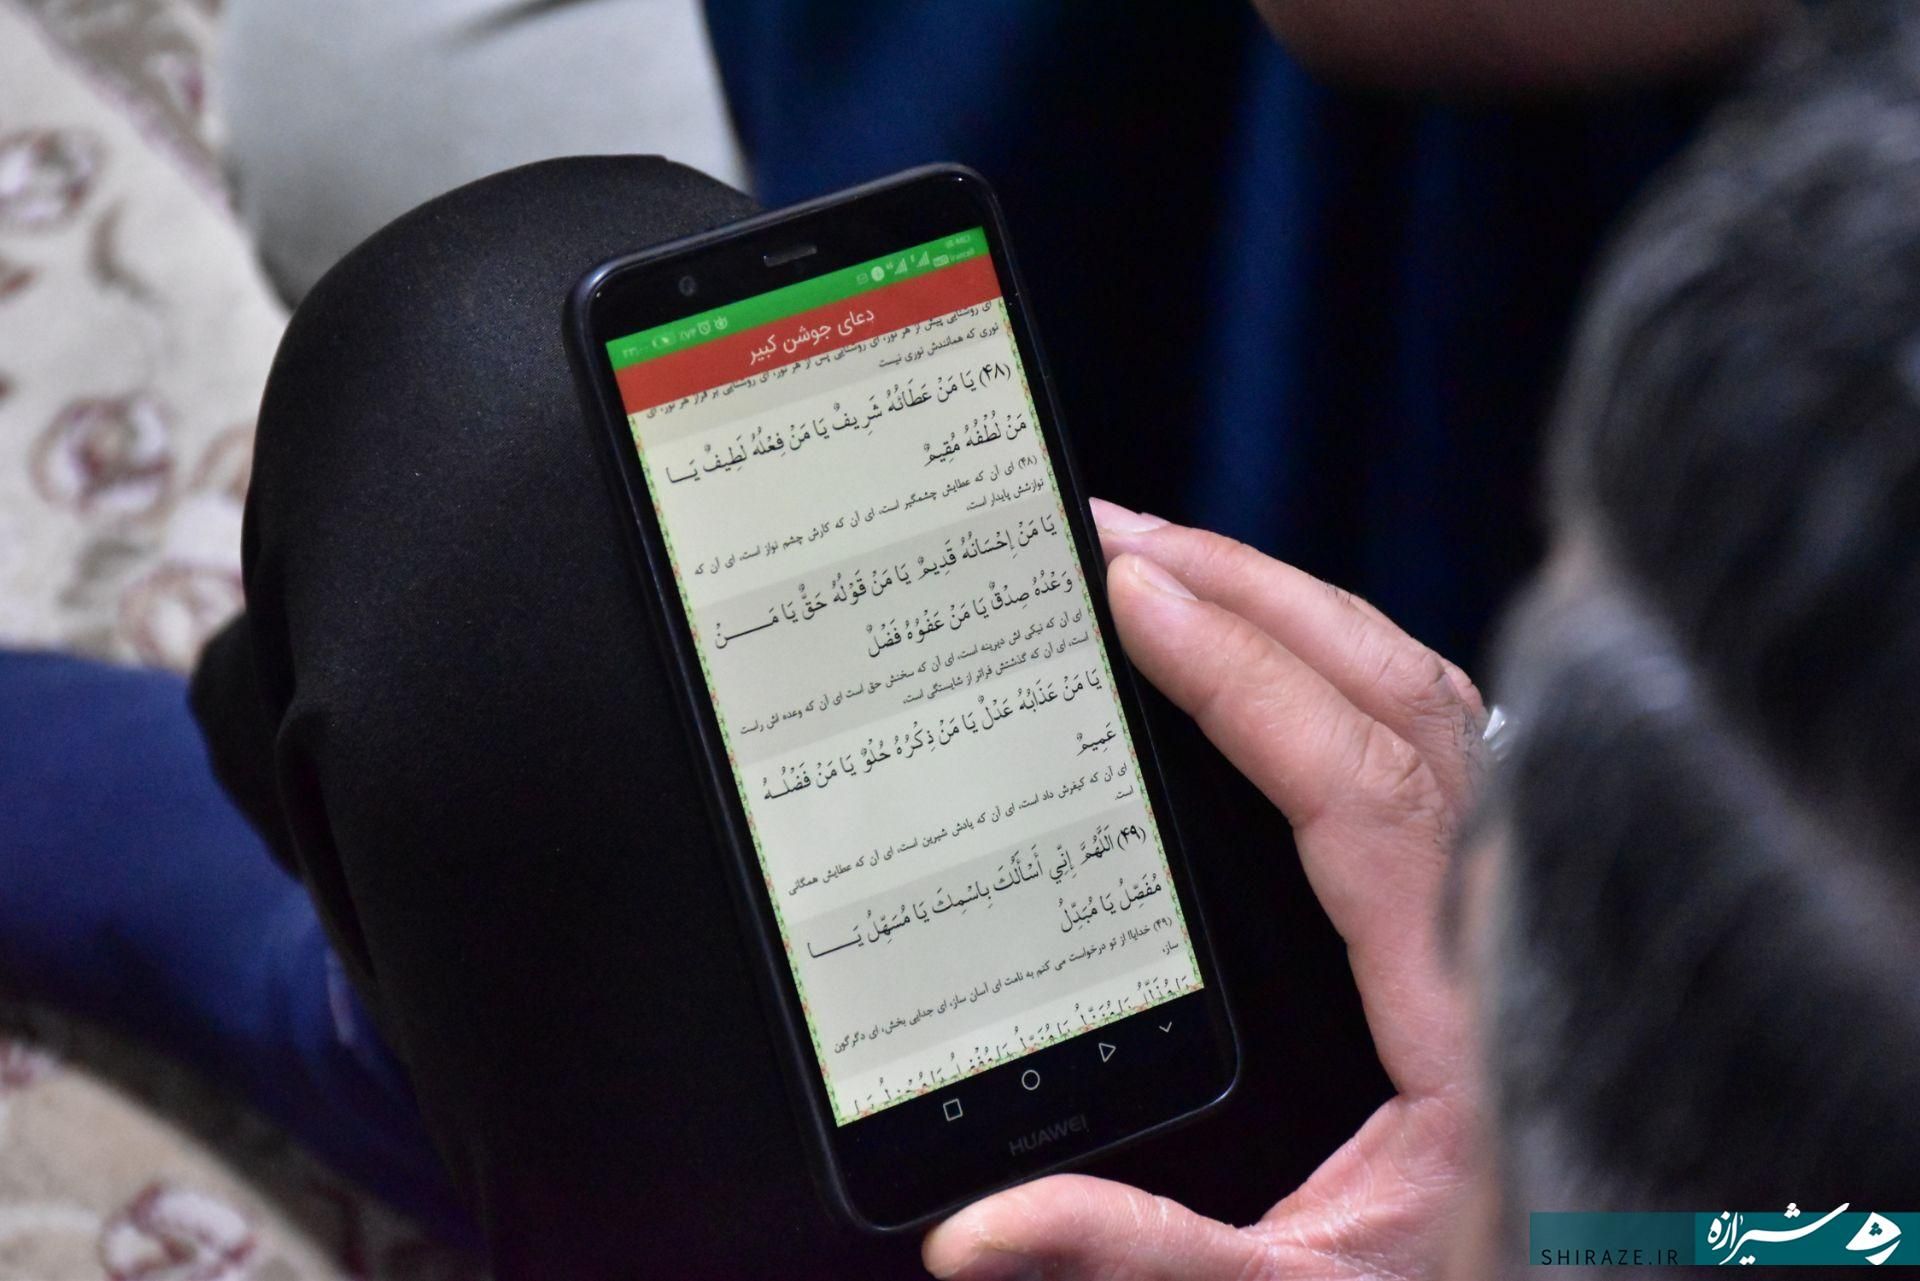 IR-MCI
Irancell
٪۷۳
دعای جوشن کبیر
ای روشنایی پیش از هر نور، ای روشنایی پس از هر نور، ای روشنایی بر فراز هر نور، ای
نوری که همانندش نوری نیست
(۴۸) يَا مَنْ عَطَائُهُ شَرِيفٌ يَا مَنْ فِعْلُهُ لَطِيفٌ يَا
مَنْ لُطْفُهُ مُقِيمٌ
(۴۸) ای آن که عطایش چشمگیر است، ای آن که کارش چشم نواز است، ای آن که
نوازشش پایدار است،
يَا مَنْ إِحْسَانُهُ قَدِيمٌ يَا مَنْ قَوْلُهُ حَقٌّ يَا مَنْ
وَعْدُهُ صِدْقٌ يَا مَنْ عَفْوُهُ فَضْلٌ
ای آن که نیکی اش دیرینه است، ای آن که سخنش حق است ای آن که وعده اش راست
است، ای آن که گذشتش فراتر از شایستگی است،
يَا مَنْ عَذَابُهُ عَدْلٌ يَا مَنْ ذِكْرُهُ حُلْوٌ يَا مَنْ فَضْلُهُ
عَمِيمٌ
ای آن که کیفرش داد است، ای آن که یادش شیرین است، ای آن که عطایش همگانی
است.
(۴۹) اَللَّهُمَّ إِنِّي أَسْأَلُكَ بِاسْمِكَ يَا مُسَهِّلُ يَا
مُفَصِّلُ يَا مُبَدِّلُ
(۴۹) خدایا! از تو درخواست می کنم به نامت ای آسان ساز، ای جدایی بخش، ای دگرگون
ساز،
HUAWEI
شیرازه
SHIRAZE.IR